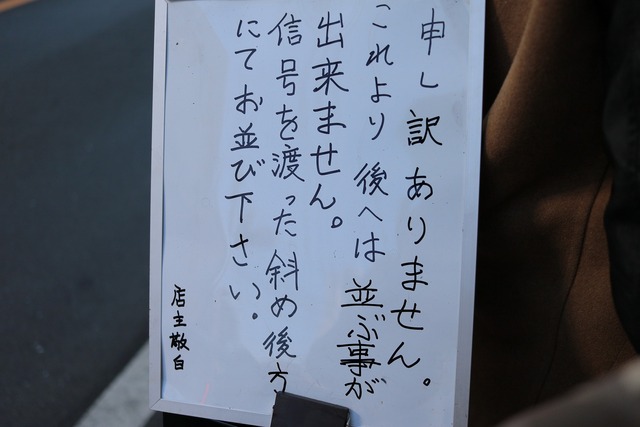 申し訳ありません。
これより後へは並ぶ事が
出来ません。
信号を渡った斜め後方
にてお並び下さい。
店主敬白